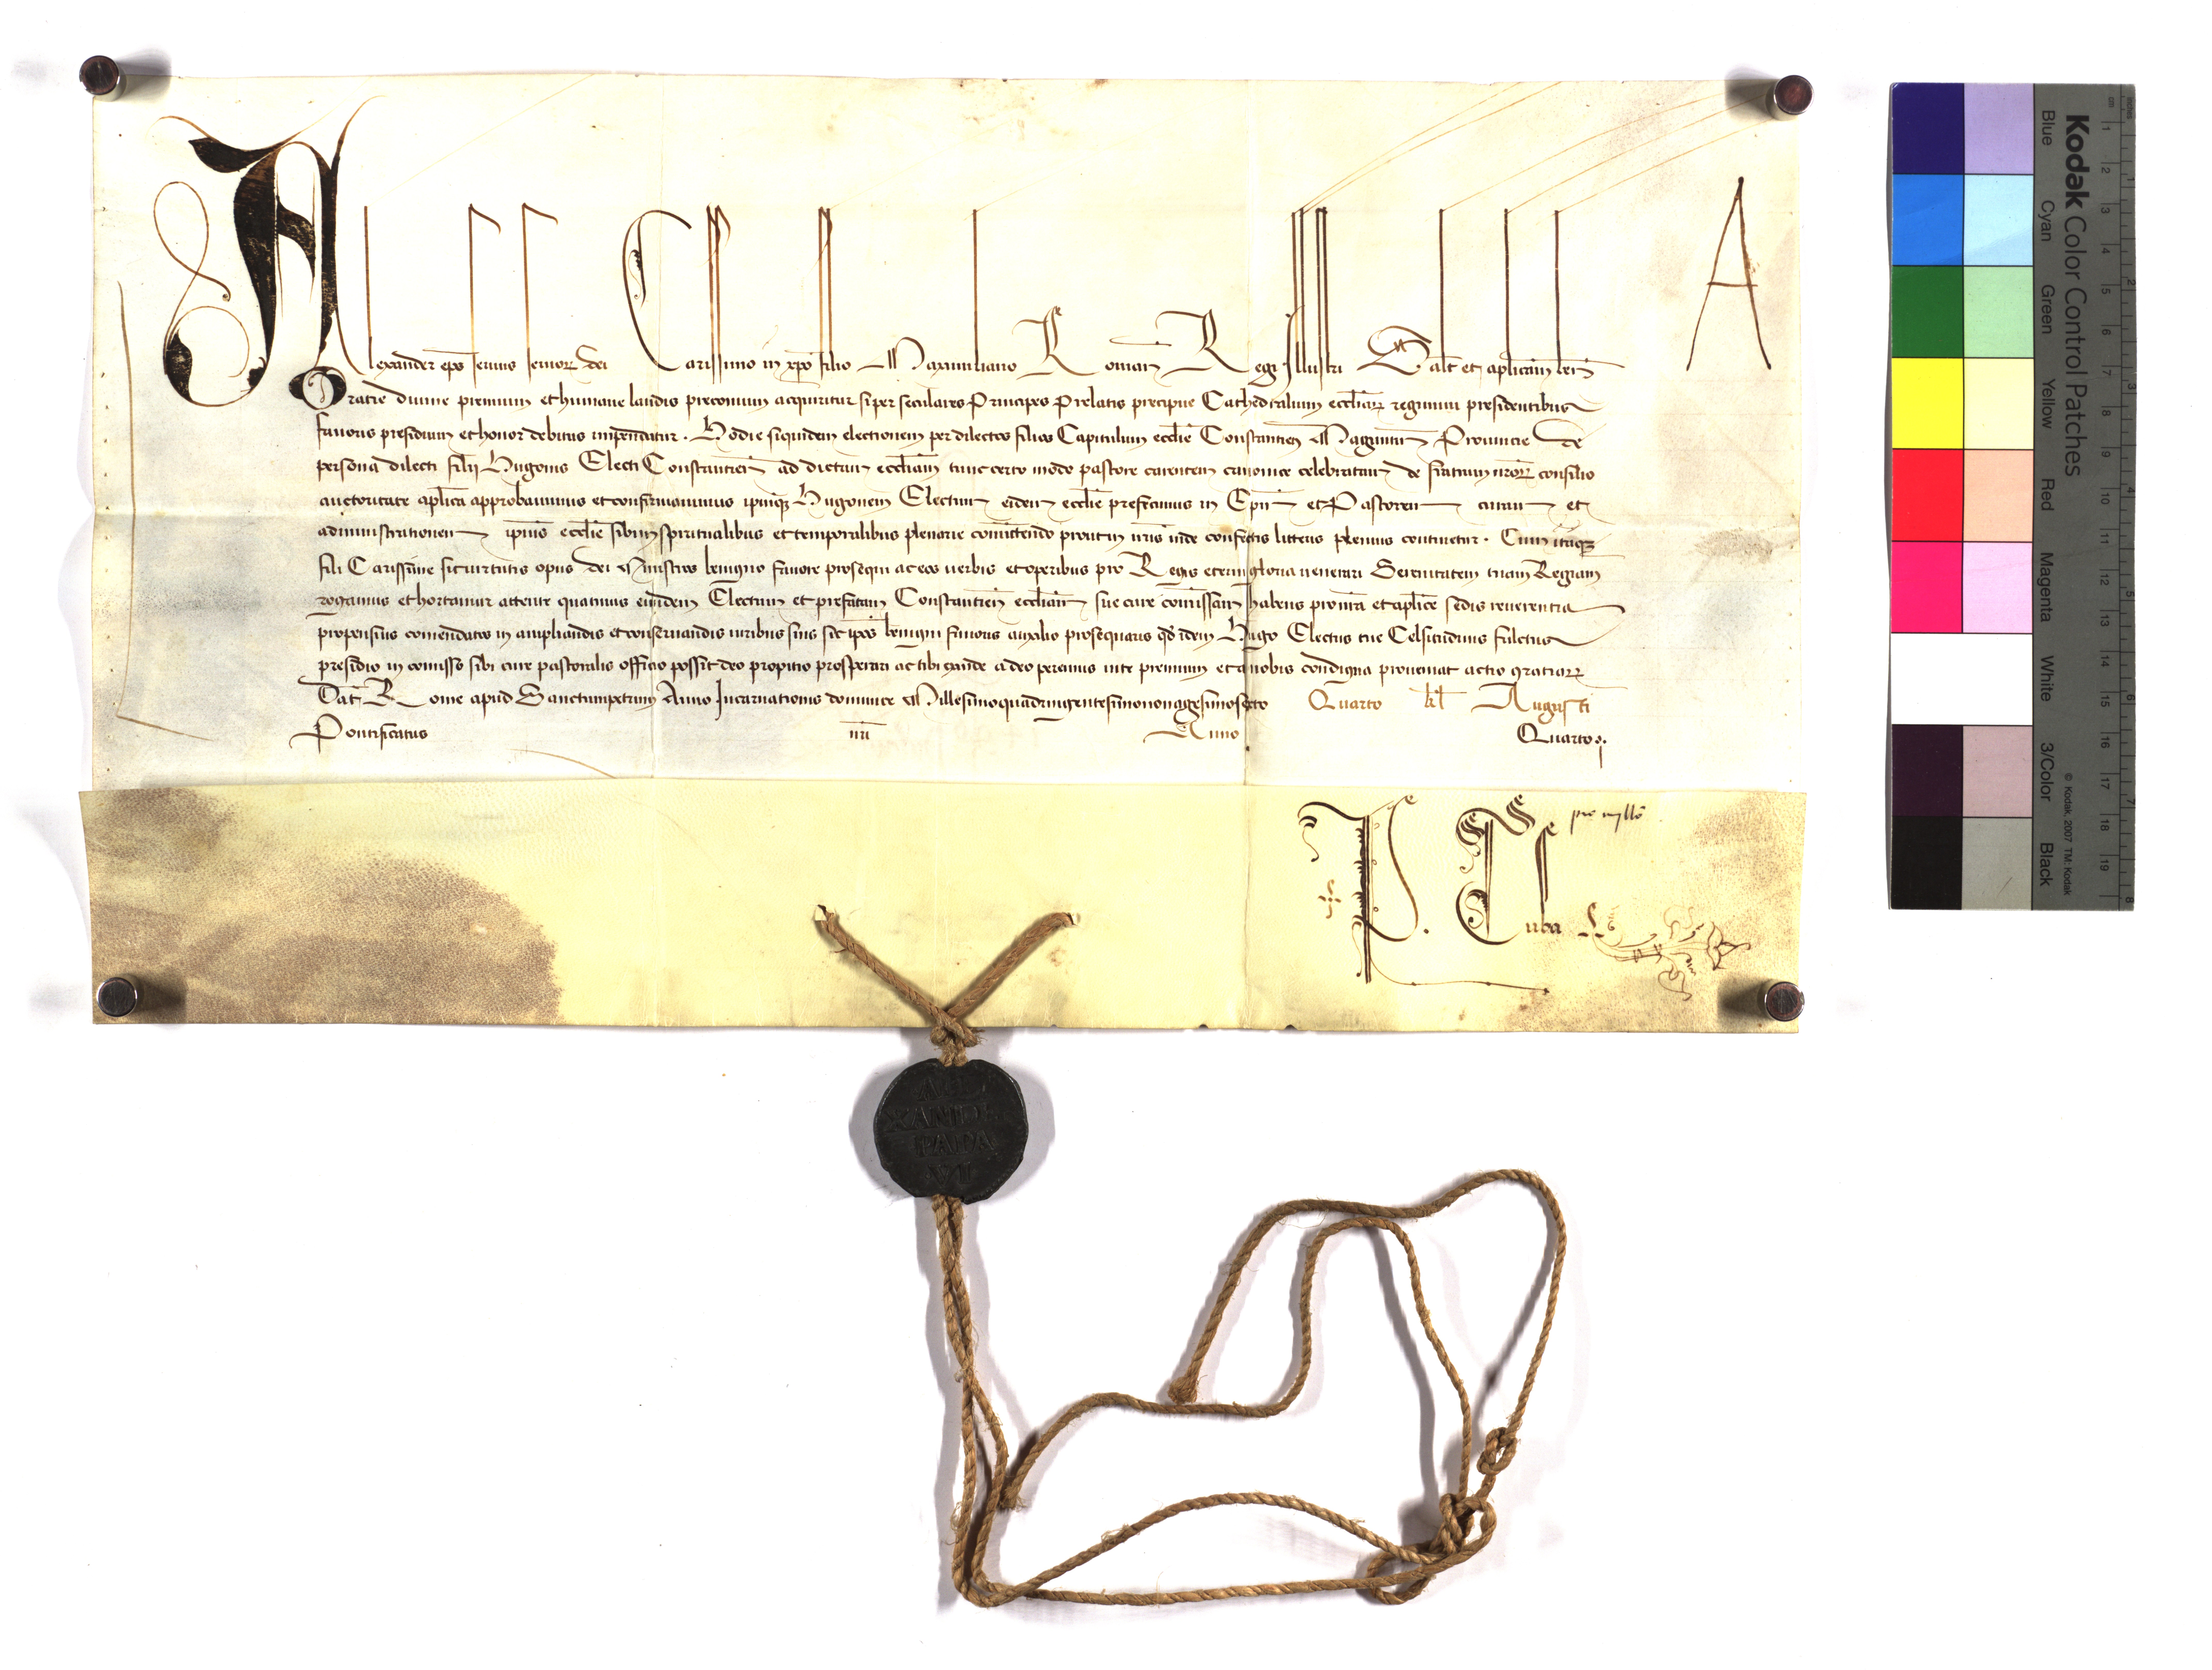 Alexander ep̄s seruus seruoꝝ dei Carissimo in xp̄o filio Maximiliano Romanoꝝ Regi Illustri Salt̄ et aplicam̄ ben̄
A
Gratie diuine premium et humane laudis preconium acquiritur si per seculares Principes Prelatis precipue Cathedralium eccl̄iaꝝ regimini presidentibus
fauoris presidium et honor debitus impendatur . Hodie siquidem electionem per dilectos filios Capitulum eccl̄ie Constantien̄ Maguntin̄ Prouincie de
persona dilecti filij Hugonis Electi Constantien̄ ad dictam eccl̄iam tunc certo modo pastore carentem canonice celebratam de fratrum nr̄oꝝ consilio
auctoritate apl̄ica approbauimus et confirmauimus ipsumqꝫ Hugonem Electum eidem eccl̄ie prefecimus in Ep̄m et Pastorem curam et
administrationem ipsius eccl̄ie sibi in spiritualibus et temporalibus plenarie com̄ittendo prout in nr̄is inde confectis litteris plenius continetur . Cum itaqꝫ
fili Carissime sit uirtutis opus dei Ministros benigno fauore prosequi ac eos uerbis et operibus pro Regis eterni gloria uenerari Serenitatem tuam Regiam
rogamus et hortamur attente quatinus eundem Electum et prefatam Constantien̄ eccl̄iam sue cure com̄issam habens pro nr̄a et apl̄ice sedis reuerentia
propensius comendatos in ampliandis et conseruandis iuribus suis sic ip̄os benigni fauoris auxilio prosequaris qd̄ idem Hugo Electus tue Celsitudinis fultus
presidio in comisso sibi cure pastoralis officio possit deo propitio prosperari ac tibi exinde a deo perennis uite premium et a nobis condigna proueniat actio gratiaꝝ
Dat̄ Rome apud Sanctumpetrum Anno Incarnationis dominice Millesimoquadringentesimononagesimosexto Quarto kl̄ Augusti
Pontificatus nr̄i Anno Quarto
P. Tuba
ALE
XANDE
PAPA
VI
Kodak Color Control Patches
Blue Cyan Green Yellow Red Magenta White 3/Color Black
© Kodak, 2007 TM: Kodak
cm 1 2 3 4 5 6 7 8 9 10 11 12 13 14 15 16 17 18 19
inches 1 2 3 4 5 6 7 8